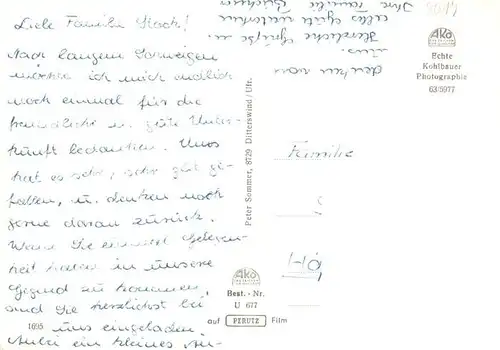 Liebe Familie Koch!
Nach langem Schweigen
möchte ich mich endlich
noch einmal für die
freundliche u. gute Unter-
kunft bedanken. Uns
hat es sehr, sehr gut ge-
fallen, u. denken noch
gerne daran zurück.
Wenn Sie einmal Gelegen-
heit haben in unsere
Gegend zu kommen
sind Sie herzlichst bei
uns eingeladen
Anbei ein kleines An-
denken von
uns.
Herzliche Grüße u.
alles Gute weiterhin
Ihre Familie
Familie
Ako
Echte
Kohlbauer
Photographie
63/5977
Peter Sommer, 8729 Ditterswind/Ufr.
Ako
Best.-Nr.
U 677
1695
auf PERUTZ Film